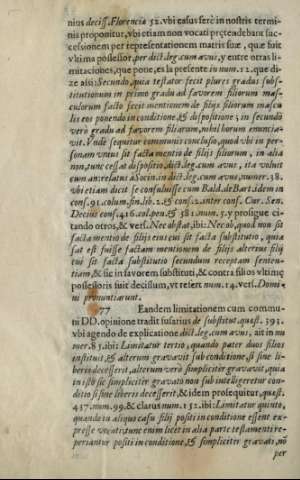 nius decis. Florencia 52. vbi casus ferè in nostris termi-
nis proponitur, vbi etiam non vocati prętendebant suc-
cessionem per representationem matris suæ, quæ fuit
vltima possessor, per dict. leg. cum avus, y entre otras li-
mitaciones, que pone, es la presente in num. 12. que di-
ze assi: Secundo, quia testator fecit plures gradus sub-
stitutionum in primo gradu ad favorem filiorum mas-
culorum facto fecit mentionem de filijs filiorum mascu
lis eos ponendo in conditione, & dispositione, in secundò
verò gradu ad favorem filiarum, nihil horum enuncia-
vit. Vndè sequitur communis conclusio, quod vbi in per-
sonam vnius sit facta mentio de filijs filiorum, in alia
non, tunc cessat dispositio, dict. leg. cum avus, ita voluit
eum antesatus à Socin. in dict. leg. cum avus, numer. 38.
vbi etiam dicit se consuluisse cum Bald. de Bart. idem in
cons. 91. colum. fin. lib. 2. & cons. 2. inter cons. Cur. Sen.
Decius cons. 416. col. pen. & 581. num. 5. y prosigue ci-
tando otros, & vers. Nec obstat, ibi: Nec ob, quod non sit
facta mentio de filijs eius cui sit facta substitutio, quia
sat est fuisse factam mentionem de filijs alterius filij
cui sit facta substitutio secundum receptam senten-
tiam, & sic in favorem substituti, & contra filios vltimę
possessoris fuit decisum, vt refert num. 14. vers. Domi-
ni pronuntiarunt.
77 Eandem limitationem cum commu-
ni DD. opinione tradit fusarius de substitut. quæst. 392.
vbi agendo de explicatione dict. leg. cum avus, ait in nu
mer. 85. ibi: Limitatur tertio, quando pater duos filios
instituit, & alterum gravavit sub conditione, si sine li-
beris decesserit, alterum verò simpliciter gravavit, quia
in isto sic simpliciter gravato non sub intelligeretur con-
ditio si sine liberis decesserit, & idem prosequitur, quæst.
437. num. 99. & clarus num. 152. ibi: Limitatur quinto,
quando in aliquo casu filij positi in conditione essent ex-
presse vocati, tunc enim licet in alia parte testamenti re-
periantur positi in conditione, & simpliciter gravati, nõ
per